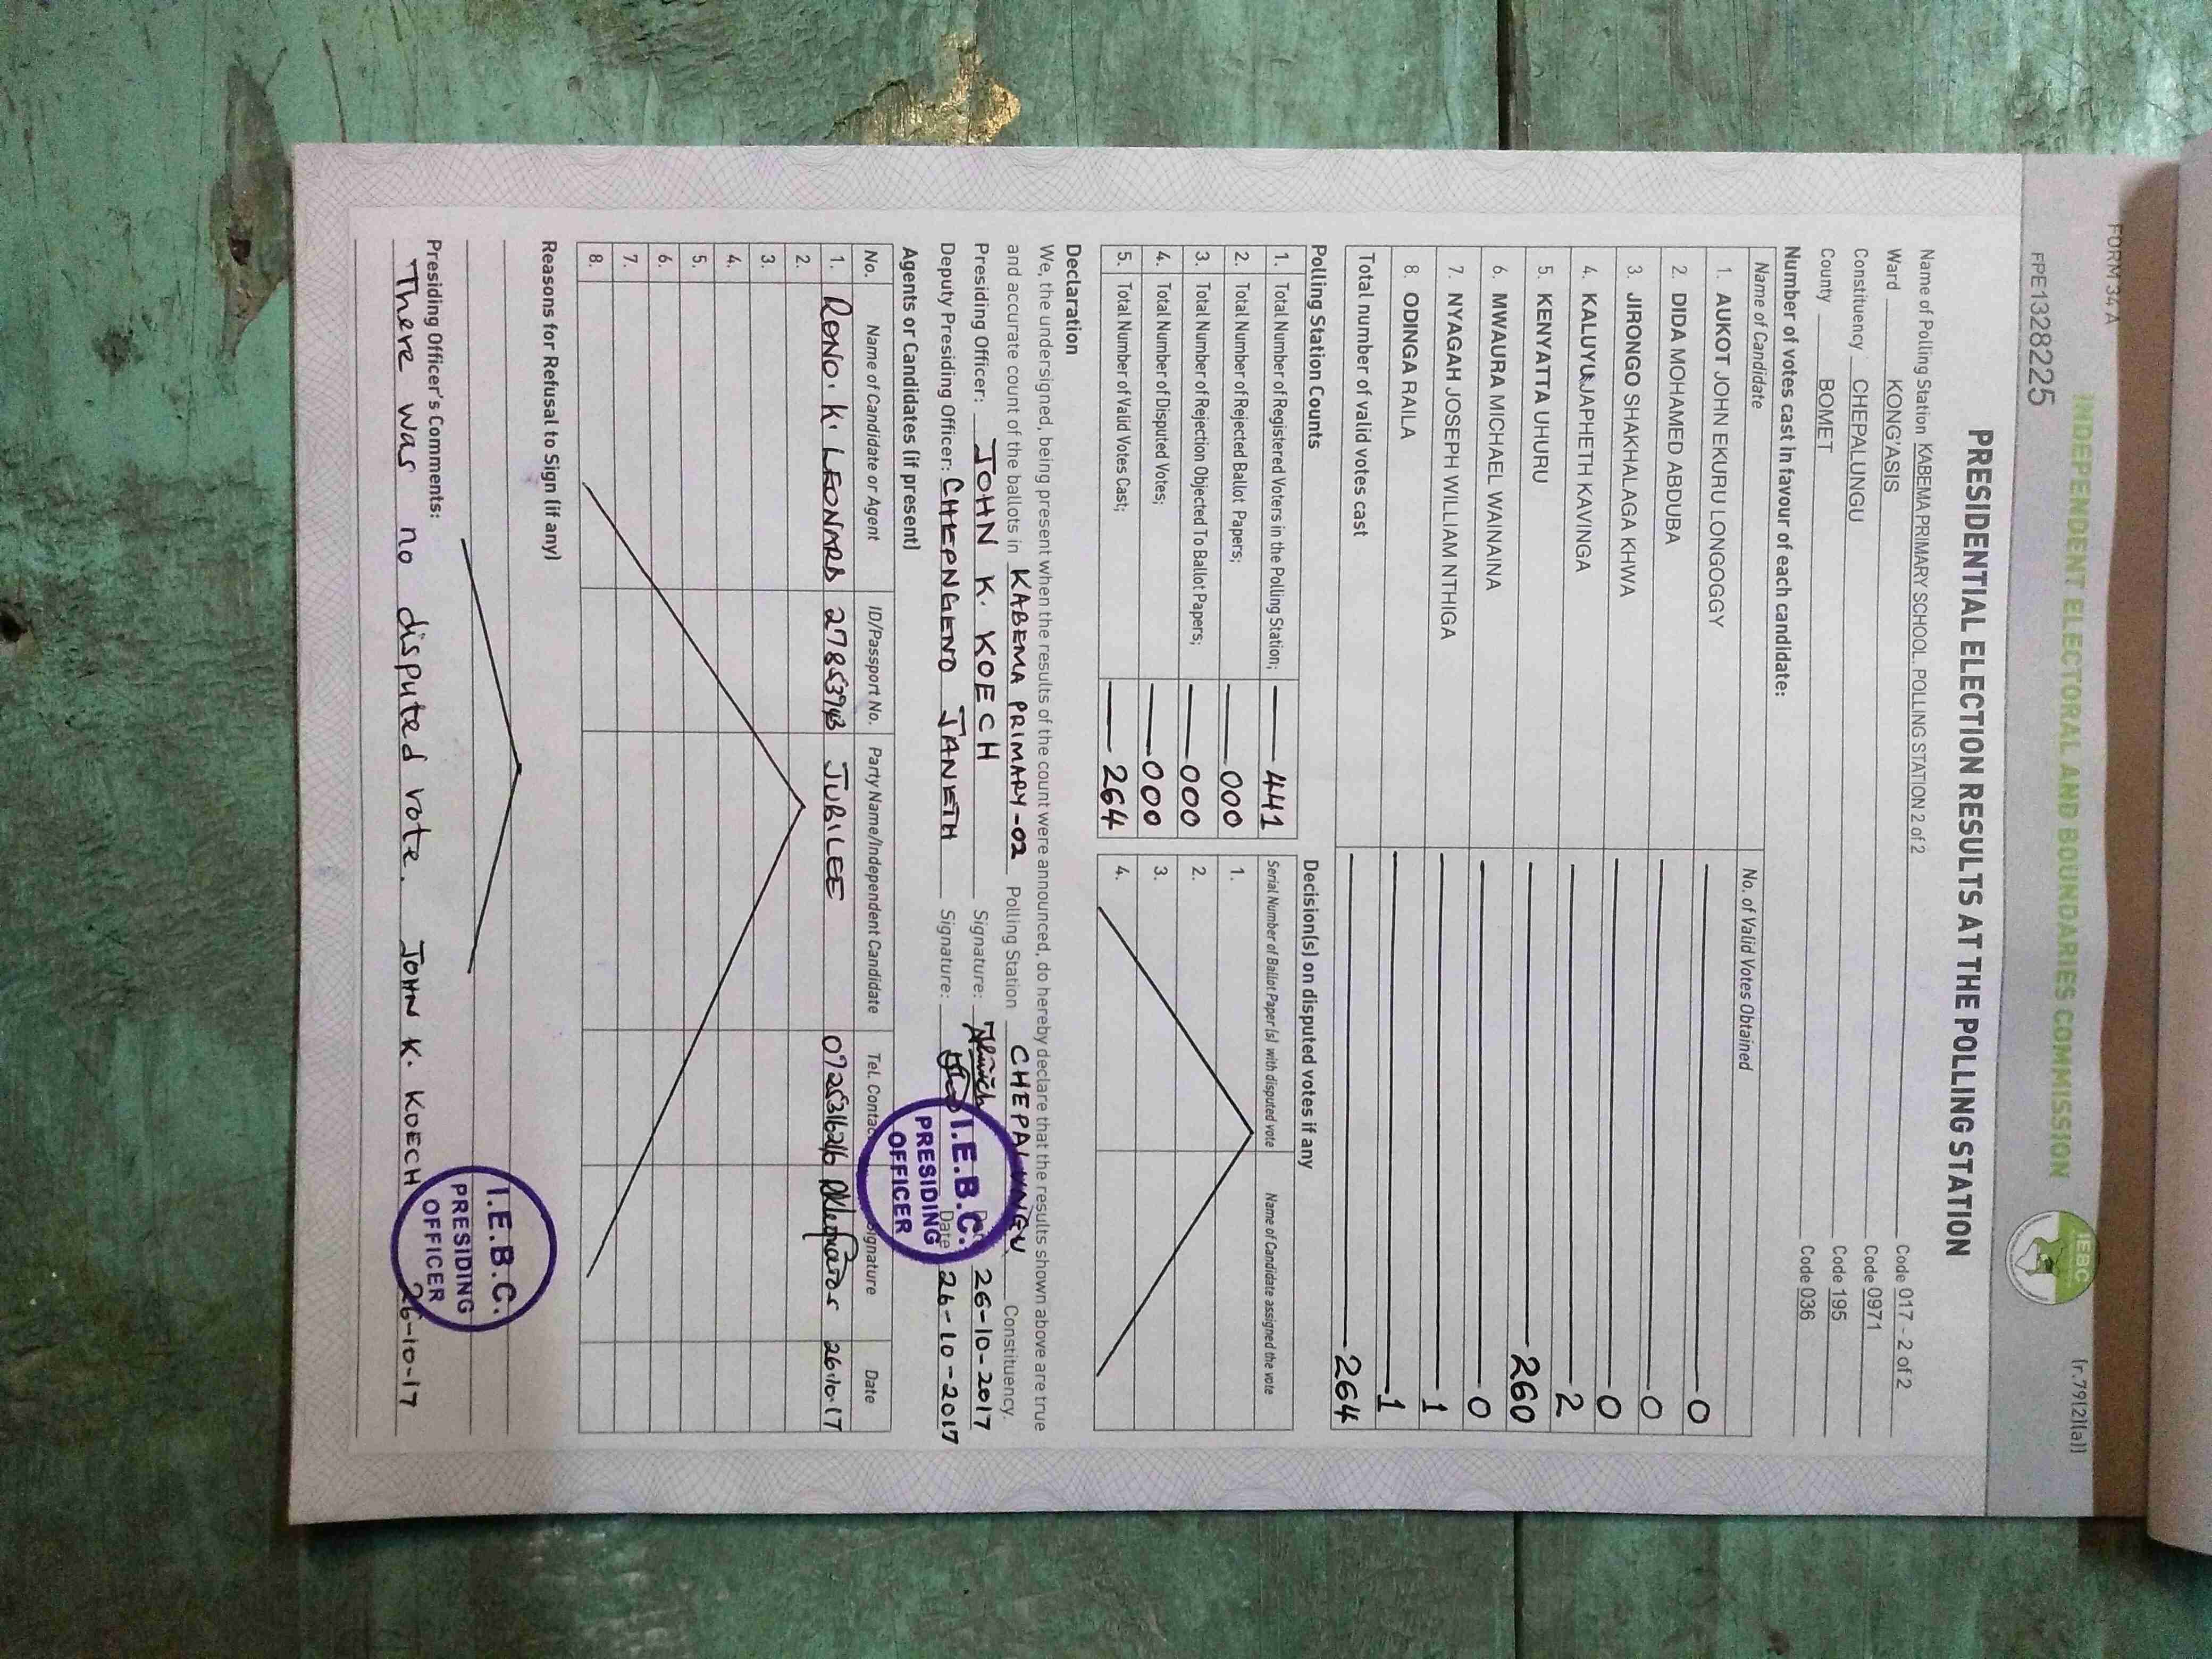 FORM 34 A
(r.79(2)(a))
INDEPENDENT ELECTORAL AND BOUNDARIES COMMISSION
IEBC
FPE1328225
PRESIDENTIAL ELECTION RESULTS AT THE POLLING STATION
Name of Polling Station KABEMA PRIMARY SCHOOL. POLLING STATION 2 of 2 Code 017 - 2 of 2
Ward KONG'ASIS Code 0971
Constituency CHEPALUNGU Code 195
County BOMET Code 036
Number of votes cast in favour of each candidate:
Name of Candidate No. of Valid Votes Obtained
1. AUKOT JOHN EKURU LONGOGGY 0
2. DIDA MOHAMED ABDUBA 0
3. JIRONGO SHAKHALAGA KHWA 0
4. KALUYU JAPHETH KAVINGA 2
5. KENYATTA UHURU 260
6. MWAURA MICHAEL WAINAINA 0
7. NYAGAH JOSEPH WILLIAM NTHIGA 1
8. ODINGA RAILA 1
Total number of valid votes cast 264
Polling Station Counts
1. Total Number of Registered Voters in the Polling Station; 441
2. Total Number of Rejected Ballot Papers; 000
3. Total Number of Rejection Objected To Ballot Papers; 000
4. Total Number of Disputed Votes; 000
5. Total Number of Valid Votes Cast; 264
Decision(s) on disputed votes if any
Serial Number of Ballot Paper(s) with disputed vote Name of Candidate assigned the vote
1.
2.
3.
4.
Declaration
We, the undersigned, being present when the results of the count were announced, do hereby declare that the results shown above are true
and accurate count of the ballots in KABEMA PRIMARY-02 Polling Station CHEPALUNGU Constituency.
Presiding Officer: JOHN K. KOECH Signature: 26-10-2017
Deputy Presiding Officer: CHEPNGENO JANETH Signature: Date 26-10-2017
I.E.B.C.
PRESIDING
OFFICER
Agents or Candidates (if present)
No. Name of Candidate or Agent ID/Passport No. Party Name/Independent Candidate Tel. Contac Signature Date
1. RONO. K. LEONARD JUBILEE 26.10.17
2.
3.
4.
5.
6.
7.
8.
Reasons for Refusal to Sign (if any)
Presiding Officer's Comments:
There was no disputed vote. JOHN K. KOECH 26-10-17
I.E.B.C.
PRESIDING
OFFICER